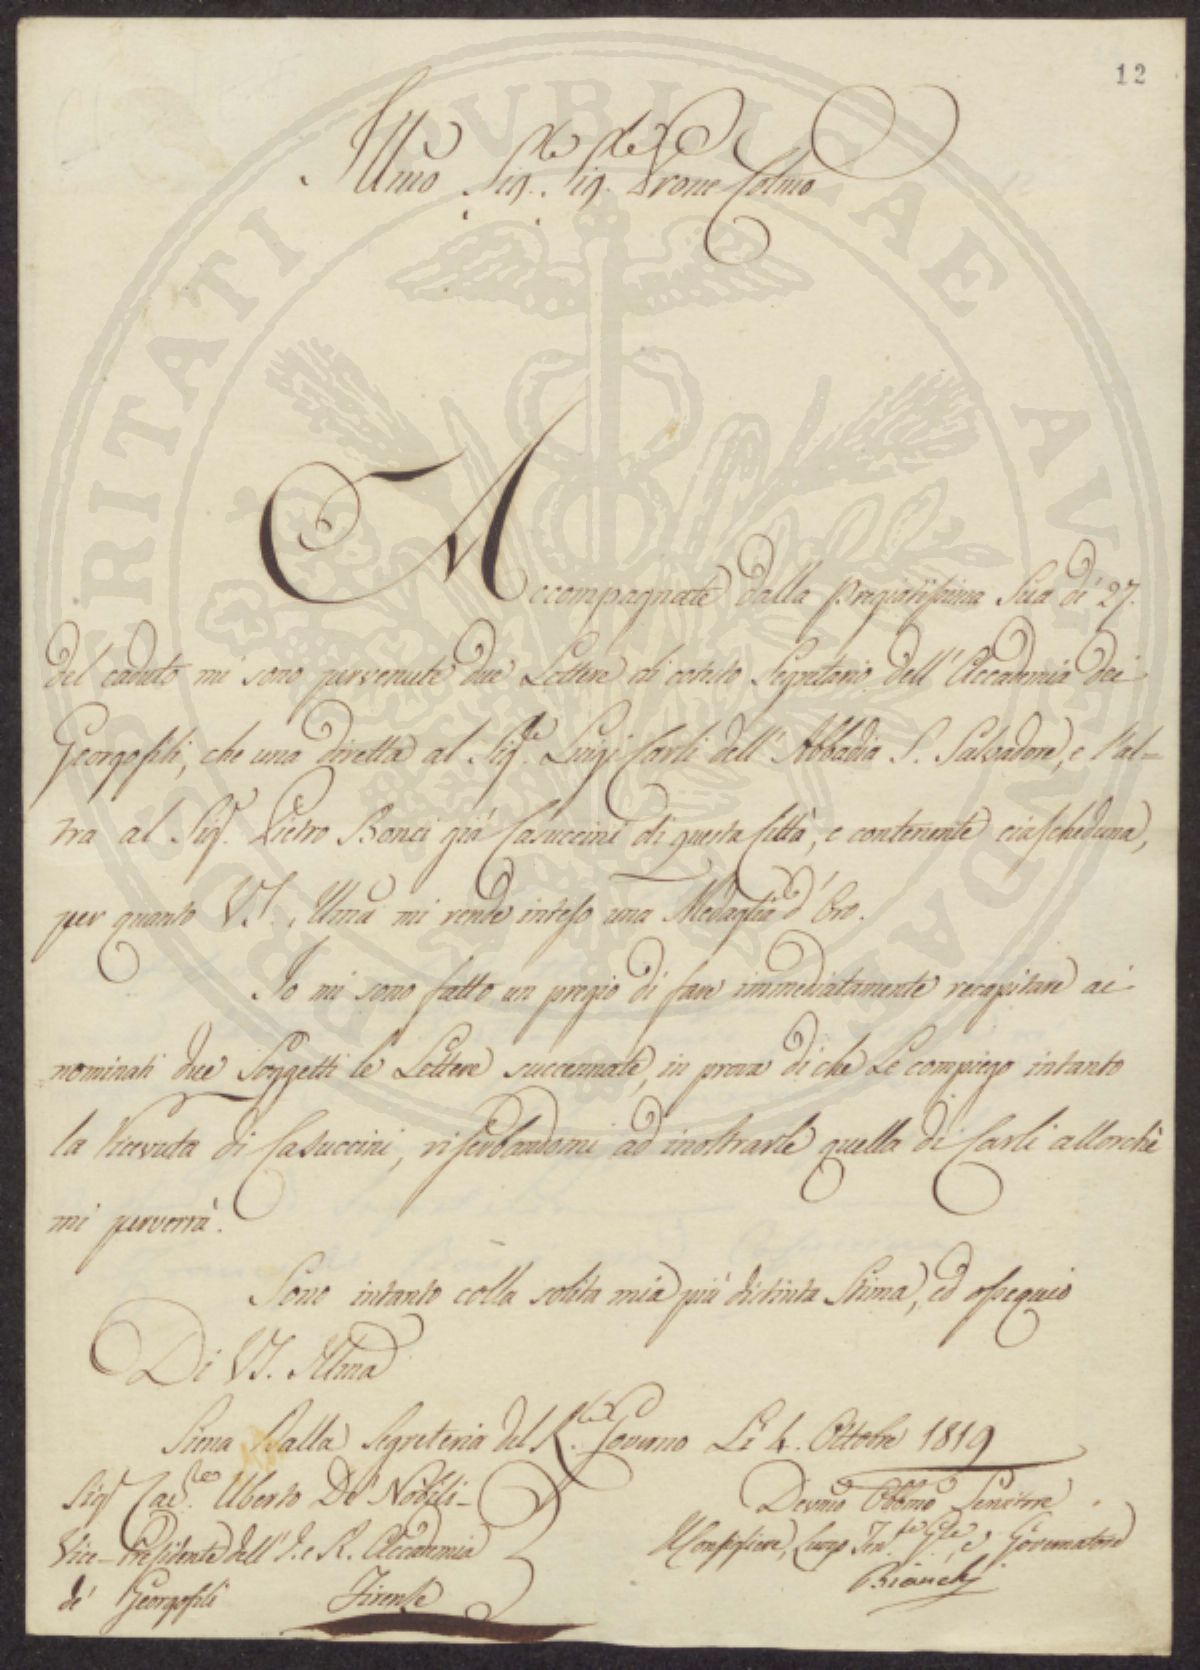 12
Illmo Sig.re Sig.re Prone Colmo
Accompagnate dalla pregiatissima Sua de' 27.
del caduto mi sono pervenute due Lettere di cotesto Segretario dell'Accademia dei
Georgofili, che una diretta al Sig.re Luigi Carli dell'Abbadia S. Salvadore, e l'al=
tra al Sig.r Pietro Bonci già Casuccini di questa Città, e contenente ciascheduna,
per quanto VS. Illma mi rende inteso una Medaglia d'Oro.
Io mi sono fatto un pregio di fare immediatamente recapitare ai
nominati due Soggetti le Lettere succennate, in prova di che Le compiego intanto
la ricevuta di Casuccini, riserbandomi ad inoltrarle quella di Carli allorchè
mi perverrà.
Sono intanto colla solita mia più distinta Stima, ed ossequio
Di VS. Illma
Siena Dalla Segreteria del R. Governo Li 4. Ottobre 1819
Sig.r Cav.re Uberto De' Nobili
Vice-Presidente dell'I. e R. Accademia
de' Georgofili Firenze
Devmo Obbmo Servitore
Il Consigliere, Luog. Ten.te Gle, e Governatore
Bianchi
PUBLICAE